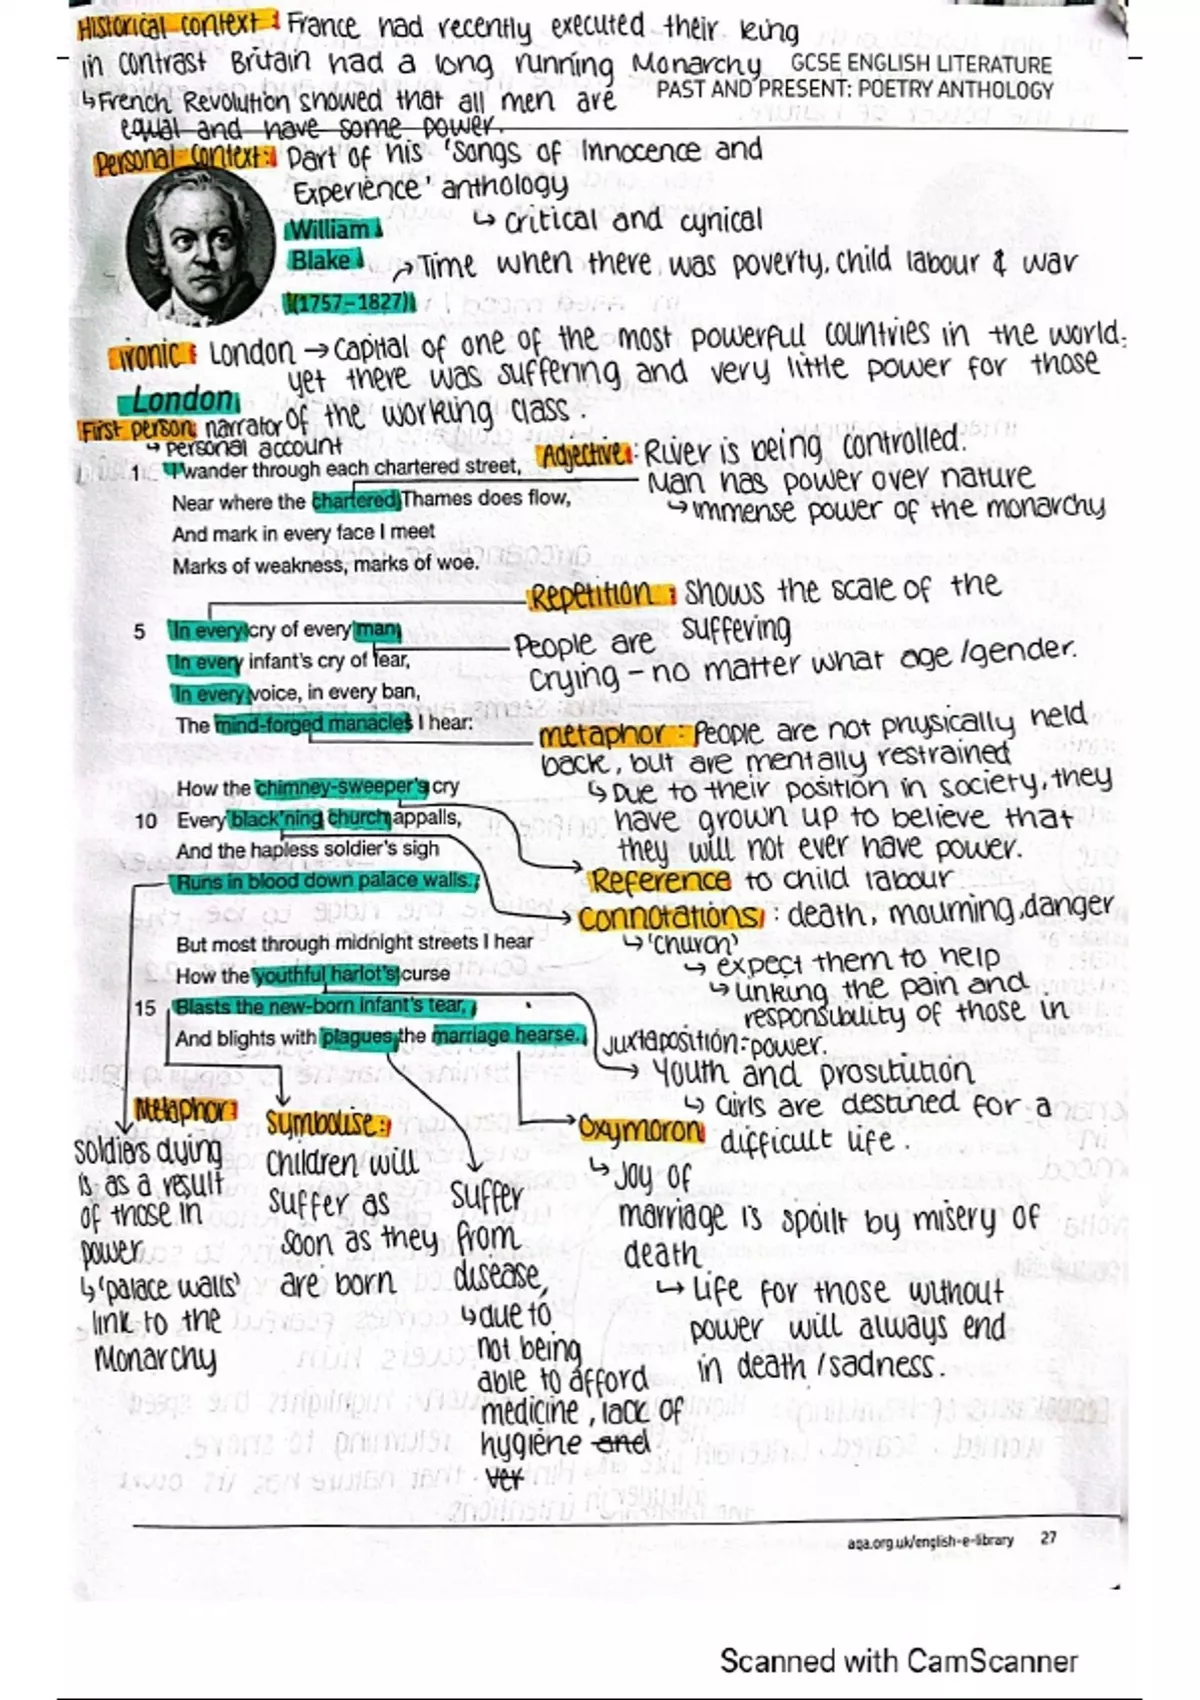 Historical context: France had recently executed their king
in contrast Britain had a long running Monarchy
GCSE ENGLISH LITERATURE
PAST AND PRESENT: POETRY ANTHOLOGY
↳French Revolution showed that all men are
equal and have some power.
Personal context: Part of his 'Songs of Innocence and
Experience' anthology
↳ critical and cynical
William
Blake
(1757–1827)
→Time when there was poverty, child labour & war
ironic: London → capital of one of the most powerful countries in the world,
yet there was suffering and very little power for those
of the working class.
London
First person narrator
↳ personal account
1 I wander through each chartered street,
Near where the chartered Thames does flow,
And mark in every face I meet
Marks of weakness, marks of woe.
Adjective: River is being controlled.
Man has power over nature
↳immense power of the monarchy
Repetition: shows the scale of the
suffering
5 In every cry of every man,
In every infant's cry of fear,
In every voice, in every ban,
The mind-forged manacles I hear:
People are
crying – no matter what age/gender.
metaphor: People are not physically held
back, but are mentally restrained
↳ Due to their position in society, they
have grown up to believe that
they will not ever have power.
How the chimney-sweeper's cry
10 Every black'ning church appalls,
And the hapless soldier's sigh
Runs in blood down palace walls.
Reference to child labour
Connotations: death, mourning, danger
↳'church'
↳ expect them to help
↳linking the pain and
responsibility of those in
power.
But most through midnight streets I hear
How the youthful harlot's curse
15 Blasts the new-born infant's tear,
And blights with plagues the marriage hearse.
Juxtaposition:
Youth and prositution
↳ Girls are destined for a
difficult life.
Metaphor:
soldiers dying
is as a result
of those in
power.
↳'palace walls'
link to the
Monarchy
Symbolise:
Children will
suffer as
soon as they
are born
suffer
from
disease,
↳due to
not being
able to afford
medicine, lack of
hygiene and
ver
Oxymoron
↳ Joy of
marriage is spoilt by misery of
death
↳ Life for those without
power will always end
in death/sadness.
aqa.org.uk/english-e-library 27
Scanned with CamScanner